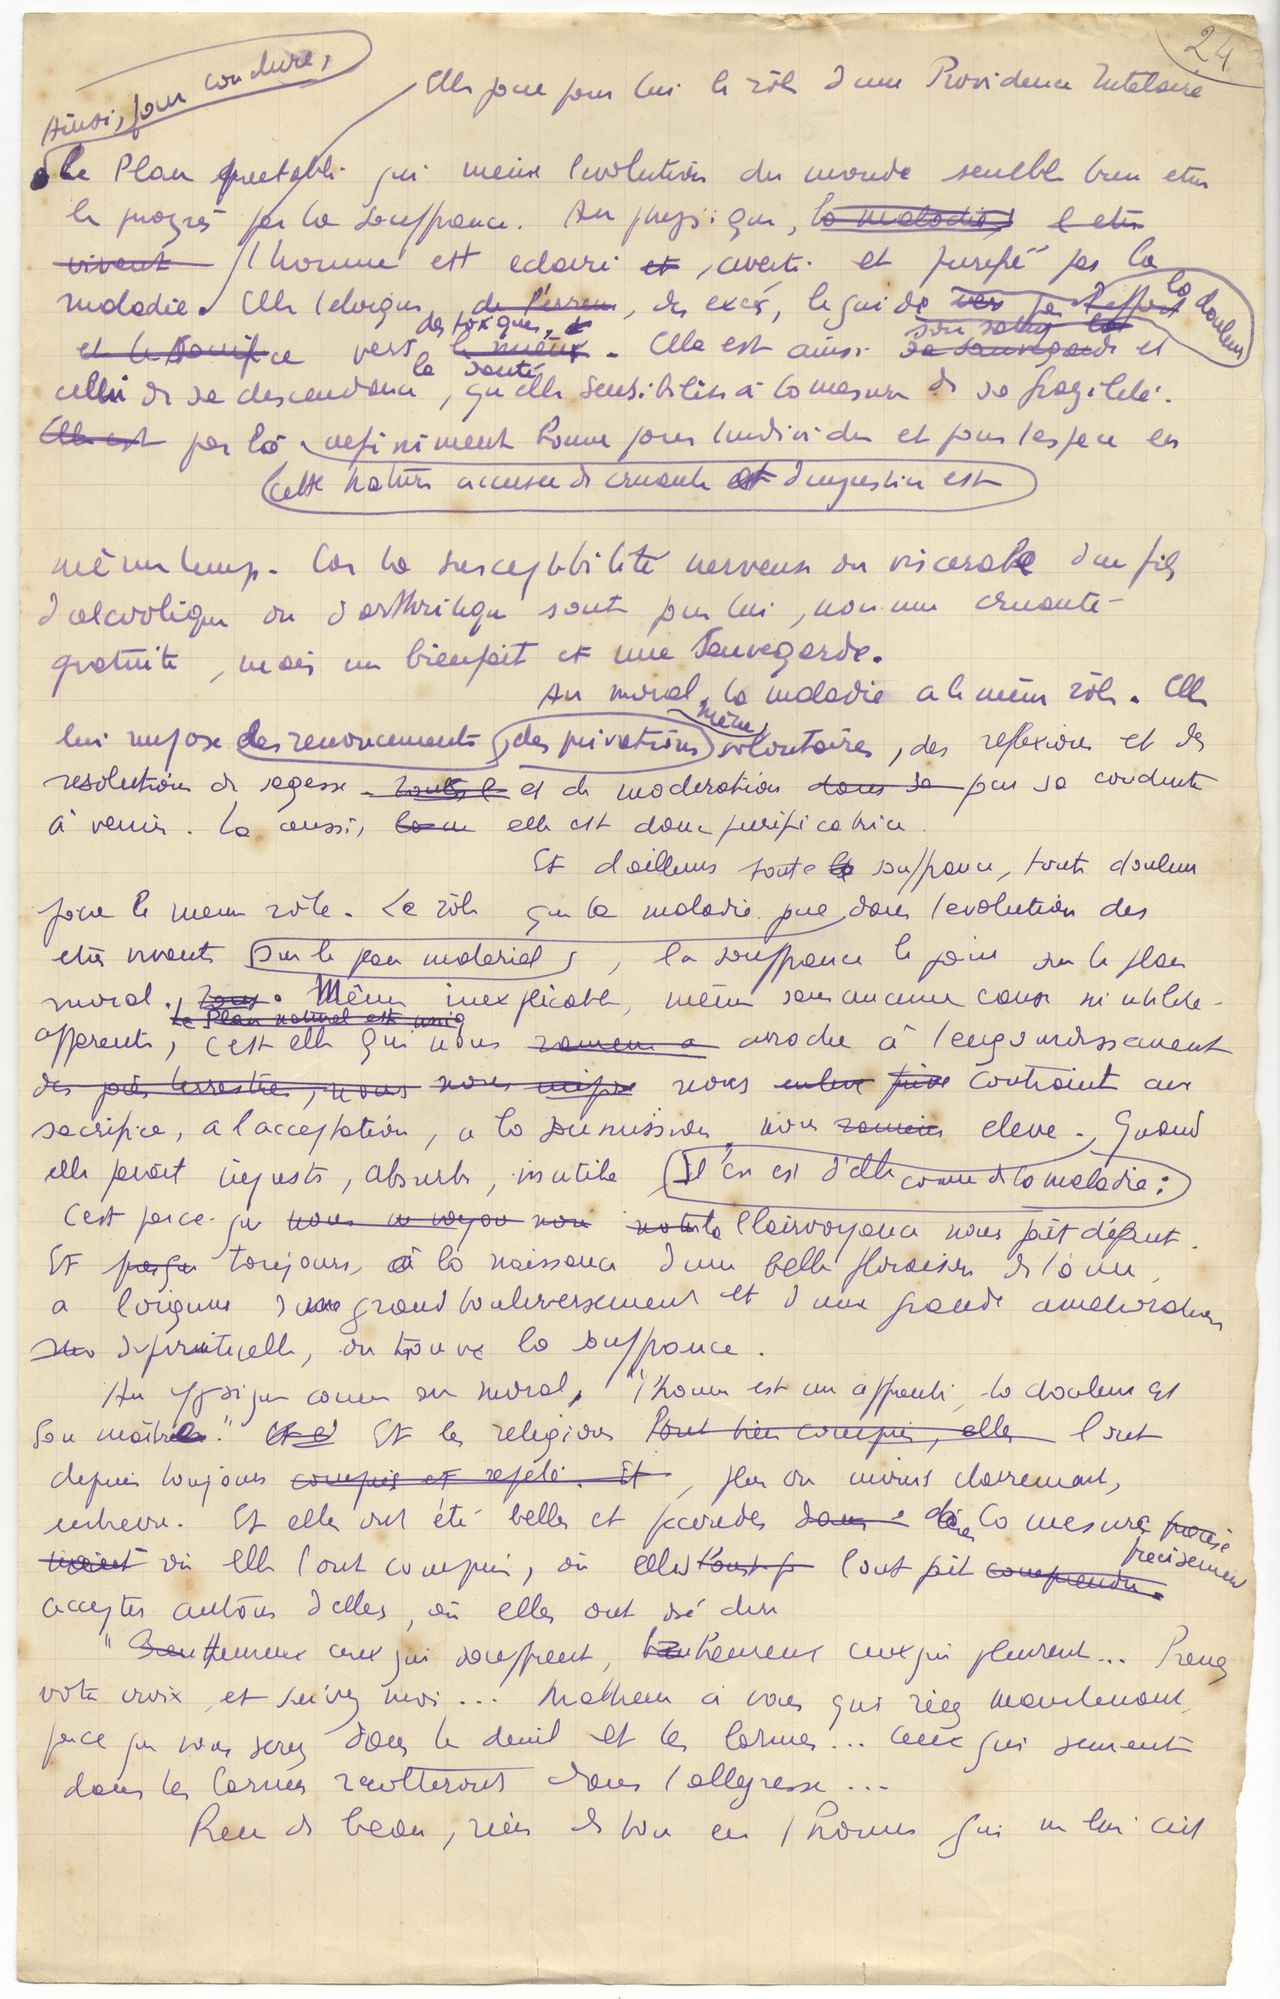 24
Ainsi, pour conclure,
Elle joue pour lui le rôle d'une Providence tutelaire
le Plan preetabli qui meine l'evolution du monde semble bien etre
le progrès par la souffrance. Au physique, la maladie, l etre
vivant l'homme est eclairé et, averti et purifié par la
maladie. Elle l'eloigne de l'erreur, des excès, le guide vers par l'effort la douleur
des toxiques,
et le sacrifice vers le mieux. Elle est ainsi sa sauvegarde et
la santé
son salut
celui de sa descendance, qu'elle sensibilise à la mesure de sa fragilité.
Elle est par là infiniment bonne pour l'individu et pour l'espece en
Cette nature accusée de cruauté et d'injustice est
même temps. Car la susceptibilité nerveuse ou viscerale d'un fils
d'alcoolique ou d'arthritique sont pour lui, non une cruauté
gratuite, mais un bienfait et une sauvegarde.
Au moral, la maladie a le même rôle. Elle
lui impose des renoncements, des privations même volontaires, des reflexions et des
resolutions de sagesse et de moderation dans sa pour sa conduite
à venir. La aussi, elle est donc purificatrice.
Et d'ailleurs toute la souffrance, toute douleur
joue le meme rôle. Le rôle que la maladie joue dans l'evolution des
etres vivants sur le plan materiel, la souffrance le joue sur le plan
moral. Même inexplicable, même sans aucune cause ni utilité
le Plan naturel est unique
apparente, c'est elle qui nous ramene a arrache à l'engourdissement
des joies terrestres, nous nous inspire nous enleve contraint au
sacrifice, a l'acceptation, a la soumission, nous eleve. Quand
elle parait injuste, absurde, inutile, il en est d'elle comme de la maladie:
c'est parce que nous ne voyons non notre la clairvoyance nous fait défaut.
Et presque toujours, à la naissance d'une belle floraison de l'âme,
a l'origine d'un grand bouleversement et d'une grande amelioration
spirituelle, on trouve la souffrance.
Au physique comme au moral, "l'homme est un apprenti, la douleur est
son maître." Et les religions l'ont bien compris, elles l'ont
depuis toujours compris et repété. Et, plus ou moins clairement,
entrevu. Et elles ont été belles et fecondes dans la mesure precise
precisement
où elles l'ont compris, où elles l'ont fait comprendre.
accepter autour d'elles, où elles ont osé dire
"Heureux ceux qui souffrent, heureux ceux qui pleurent... Prenez
votre croix et suivez moi... Malheur à vous qui riez maintenant,
parce que vous serez dans le deuil et les larmes... Ceux qui sement
dans les larmes recolteront dans l'allegresse...
Rien de beau, rien de bon en l'homme qui ne lui ait